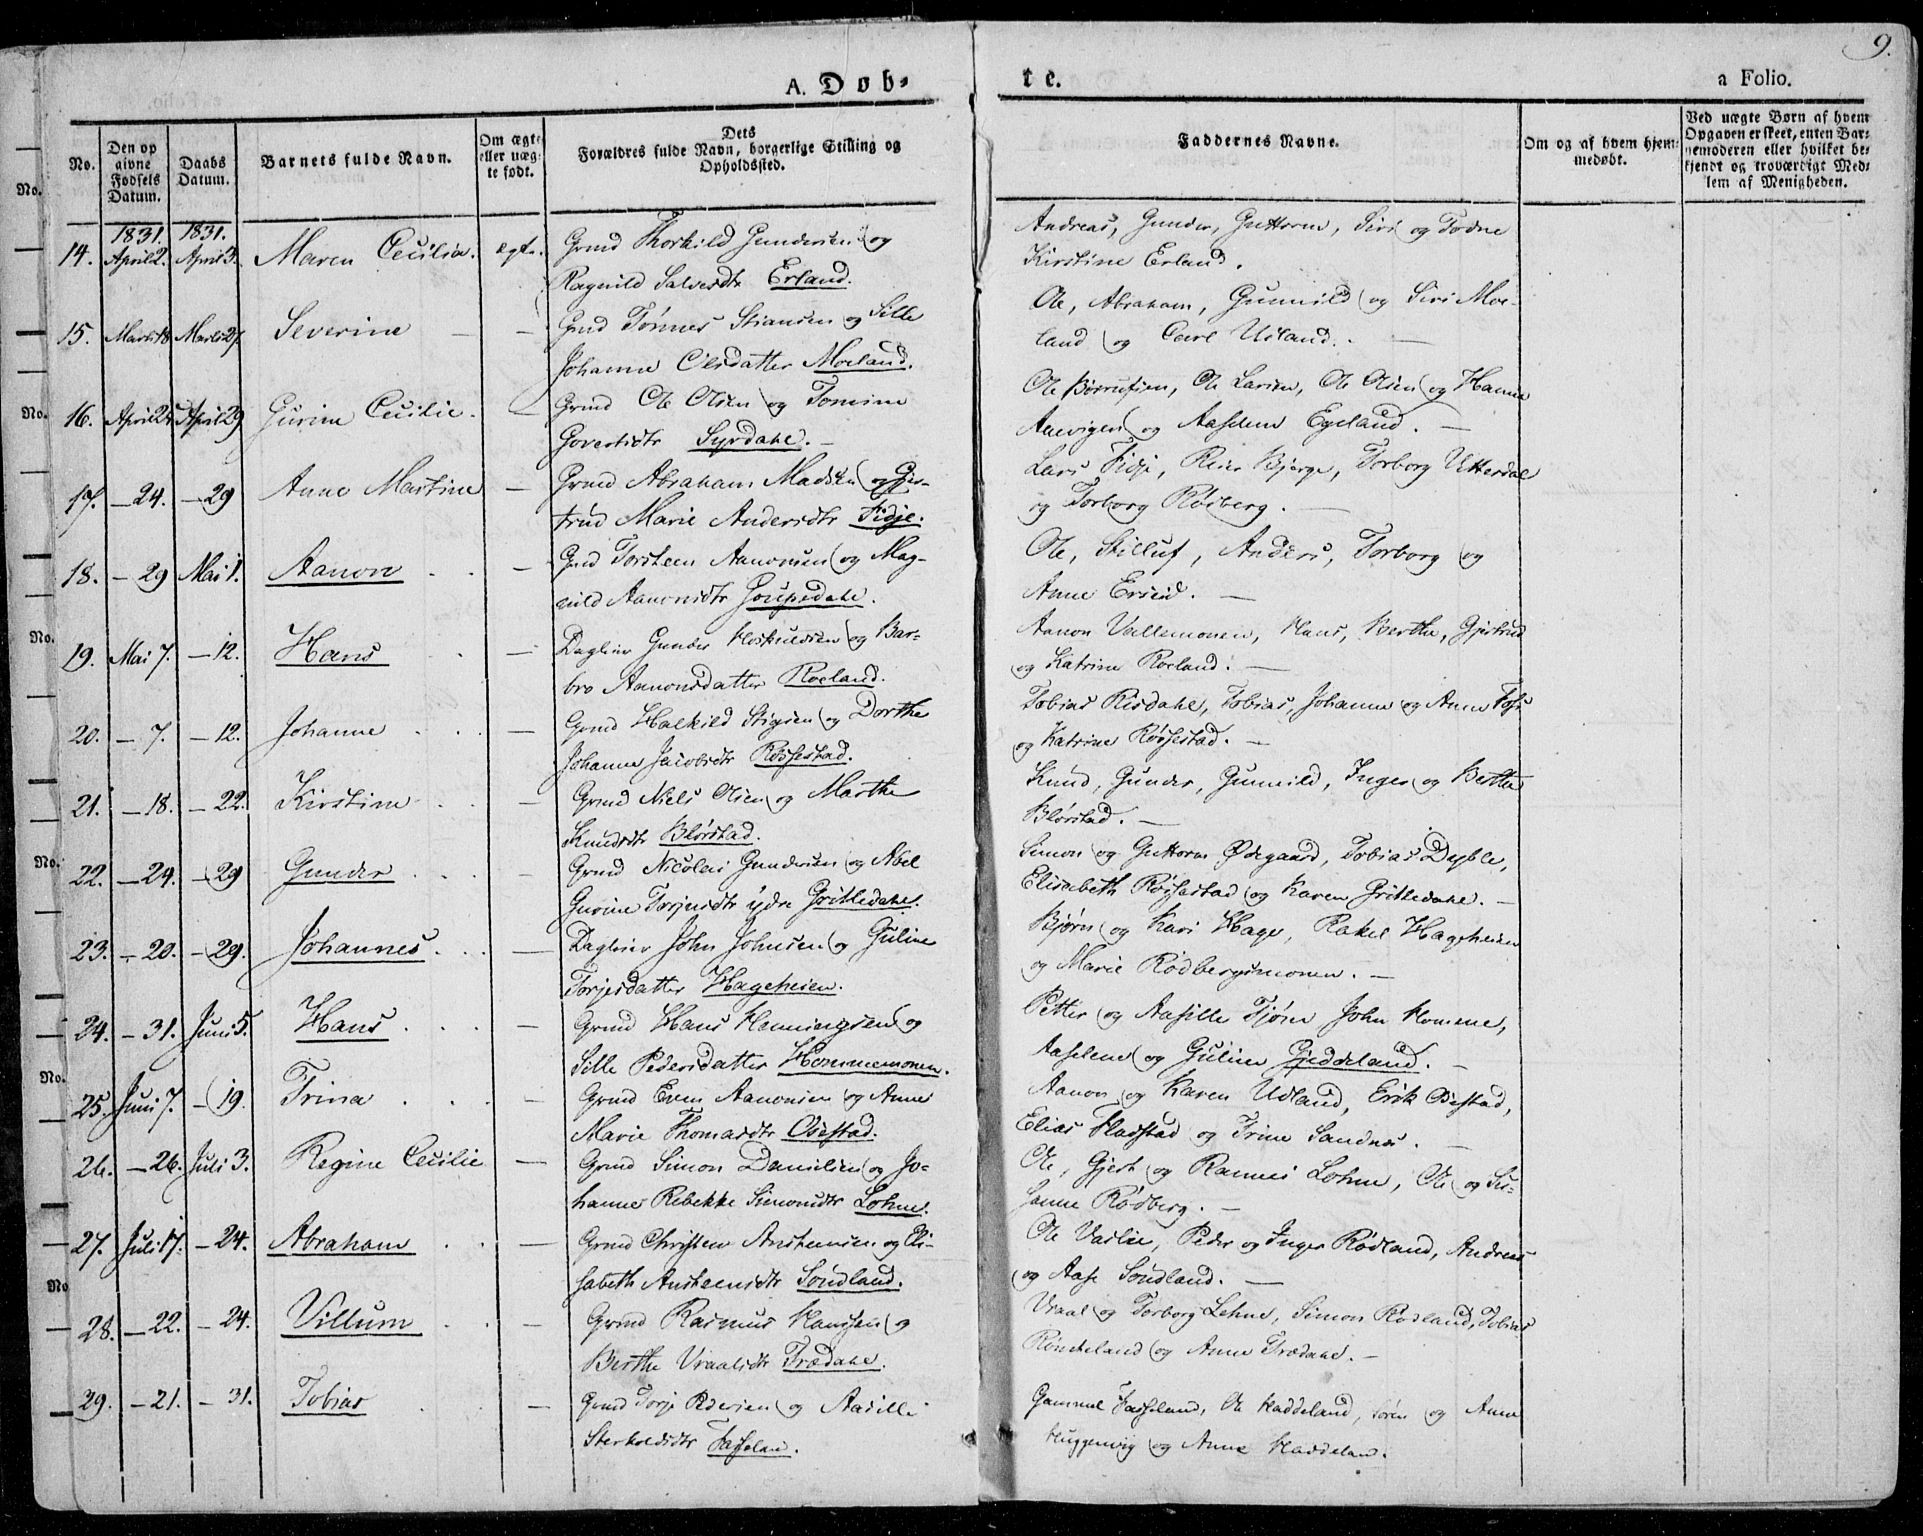 9.
A. Døb-
te.
a Folio.
No.
Den op givne Fødsels Datum.
Daabs Datum.
Barnets fulde Navn.
Om ægte eller uægte født.
Dets Forældres fulde Navn, borgerlige Stilling og Opholdssted.
Faddernes Navne.
Om og af hvem hjemmedøbt.
Ved uægte Børn af hvem Opgaven er skeet, enten Barnemoderen eller hvilket bekjendt og troværdigt Medlem af Menigheden.
1831. 1831.
14. April 2. April 3. Maren Cecilia. ægte. Grmd Thorkild Gundersen og
Ragnild Salvesdtr Erland.
Andreas, Gunder, Guttorm, Siri og Todne
Kirstine Erland.
15. Marts 18 Marts 27 Severine — — Gmd Tønnes Stiansen og Sille
Johanne Olsdatter Moeland.
Ole, Abraham, Gunnild og Siri Moe-
land og Carl Udland. —
16. April 25 April 29 Gurine Cecilie. — Grmd Ole Olsen og Tomine
Govertsdtr Syrdahl. —
Ole Børrufsen, Ole Larsen, Ole Olsen og Hanne
og Aaselene Egeland. —
17. — 24. — 29 Anne Martine — Grmd Abraham Madsen og Gjer-
trud Marie Andersdtr Fidje.
Lars Fidje, Reier Bjerge, Torborg Utterdal
og Torborg Rødberg. —
18. — 29 Mai 1. Aanon — Gmd Torsteen Aanonsen og Mag-
nild Aanonsdtr
Ole, Stilluf, Anders, Torborg og
Anne Erseid. —
19. Mai 7. — 12. Hans — Daglein Gunder Hoskuldsen og Bar-
bro Aanonsdatter Roeland.
Aanon Vallemonen, Hans, Berthe, Gjertrud
og Katrine Roeland. —
20. — 7. — 12. Johanne — Grmd Halkild Stigsen og Dorthe
Johanne Jacobsdtr Røssestad.
Tobias Risdahl, Tobias, Johanne og Anne Foss
og Katrine Røssestad. —
21. — 18. — 22. Kirstine — Grmd Niels Olsen og Marthe
Knudsdtr Blørstad.
Knud, Gunder, Gunnild, Inger og Berthe
Blørstad. —
22. — 24. — 29 Gunder — Grmd Nicolai Gundersen og Abel
Gurine Torjusdtr ydre Grislledahl.
Simon og Guttorm Ødegaard, Tobias Dyble,
Elisabeth Røssestad og Karen Grislledahl. —
23. — 20. — 29. Johannes — Daglein John Johnsen og Guline
Torjesdatter Hageheien.
Bjørn og Kari Hage, Rakel Hageheien
og Marie Rødbergsmonen. —
24. — 31. Juni 5. Hans — Grmd Hans Henningsen og
Sille Pedersdatter Hommemonen.
Petter og Aasille Tjørn John Homme,
Aaselene og Guline Gjeddeland. —
25. Juni 7. — 19. Trina — Grmd Even Aanonsen og Anne
Marie Thomasdtr Osestad.
Aanon og Karen Udland, Erik Osestad,
Elias Fladstad og Trine Sandnes. —
26. — 26. Juli 3. Regine Cecilie — Grmd Simon Danielsen og Jo-
hanne Rebekke Simonsdtr Lohne.
Ole, Gjert og Rannei Lohne, Ole og Su-
sanne Rødberg. —
27. Juli 17. — 24. Abraham — Grmd Christen Anstensen og Eli-
sabeth Anstensdtr Søndland.
Ole Vaslie, Peder og Inger Rødland, Andreas
og Aase Søndland. —
28. — 22. — 24. Villum — Grmd Rasmus Hanssen og
Berthe Vraalsdtr Trædahl.
Vraal og Torborg Lehne, Simon Rødland, Tobias
Røndeland og Anne Trædahl. —
29. — 21. — 31. Tobias — Gmd Torje Reiersen og Aasille
Sterkoldsdtr Fasseland.
Gammel Fasseland, Ole Haddeland, Søren og Anne
Huggenvig og Anne Haddeland.